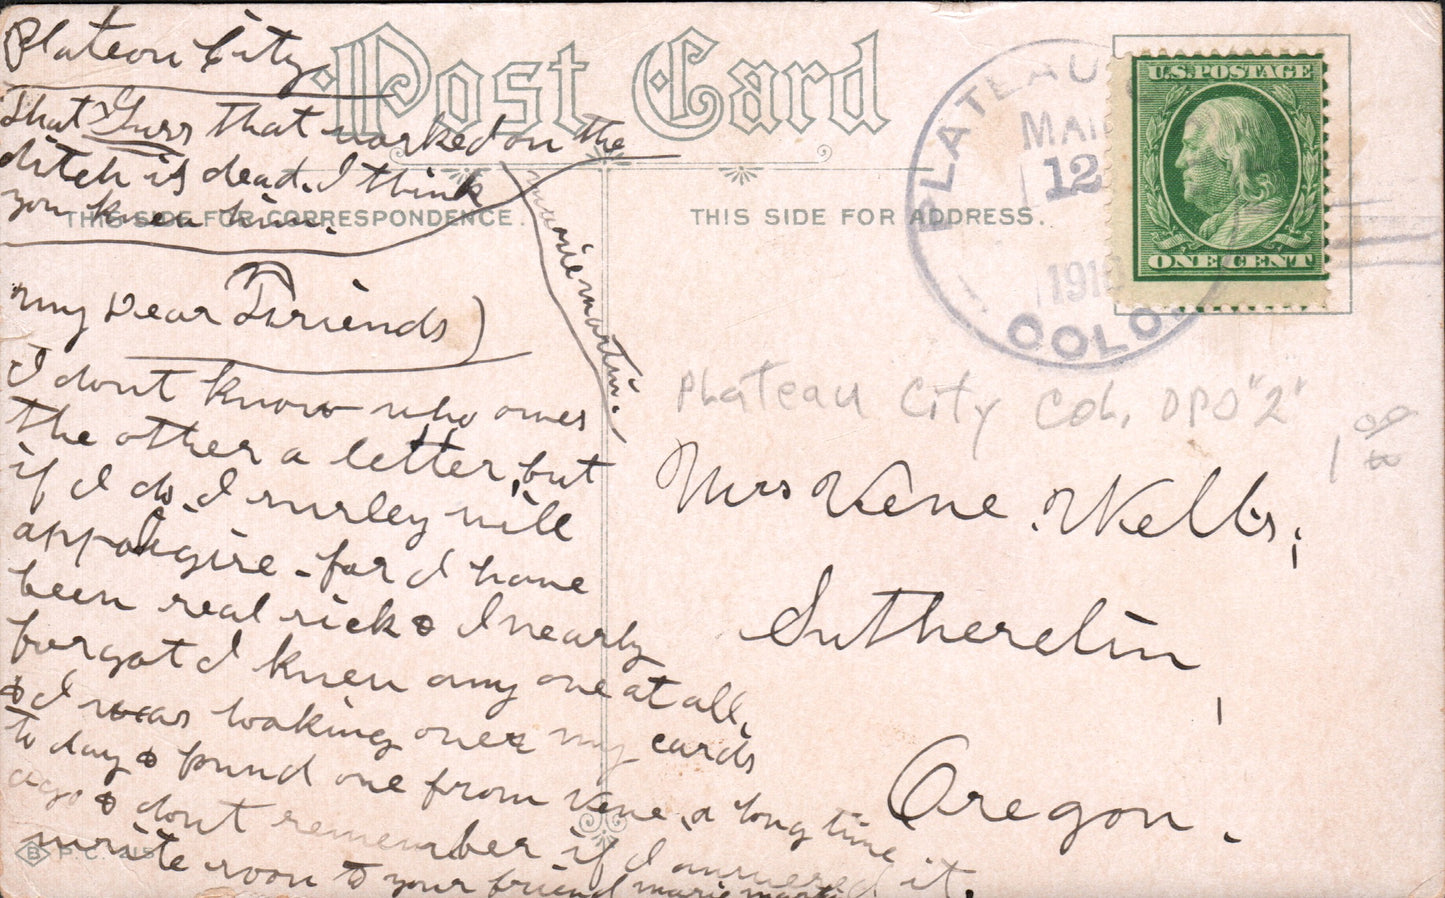 Plateau City
Post Card
That Guss that worked on the
ditch is dead. I think
you knew him.
THIS SIDE FOR CORRESPONDENCE.
THIS SIDE FOR ADDRESS.
PLATEAU
MAR
12
1910
COLO.
U.S. POSTAGE
ONE CENT
marie martin.
my Dear Friends
I dont know who owes
the other a letter, but
if I do, I surley will
appoligise - for I have
been real sick & I nearly
forgot I knew any one at all,
& I was looking over my cards
to day & found one from Vene, a long time
ago & dont remember if I answered it.
write soon to your friend marie martin
Plateau City Col. DPO "2"
1 00
Mrs Vene Wells,
Sutherelin,
Oregon.
B P.C. 215